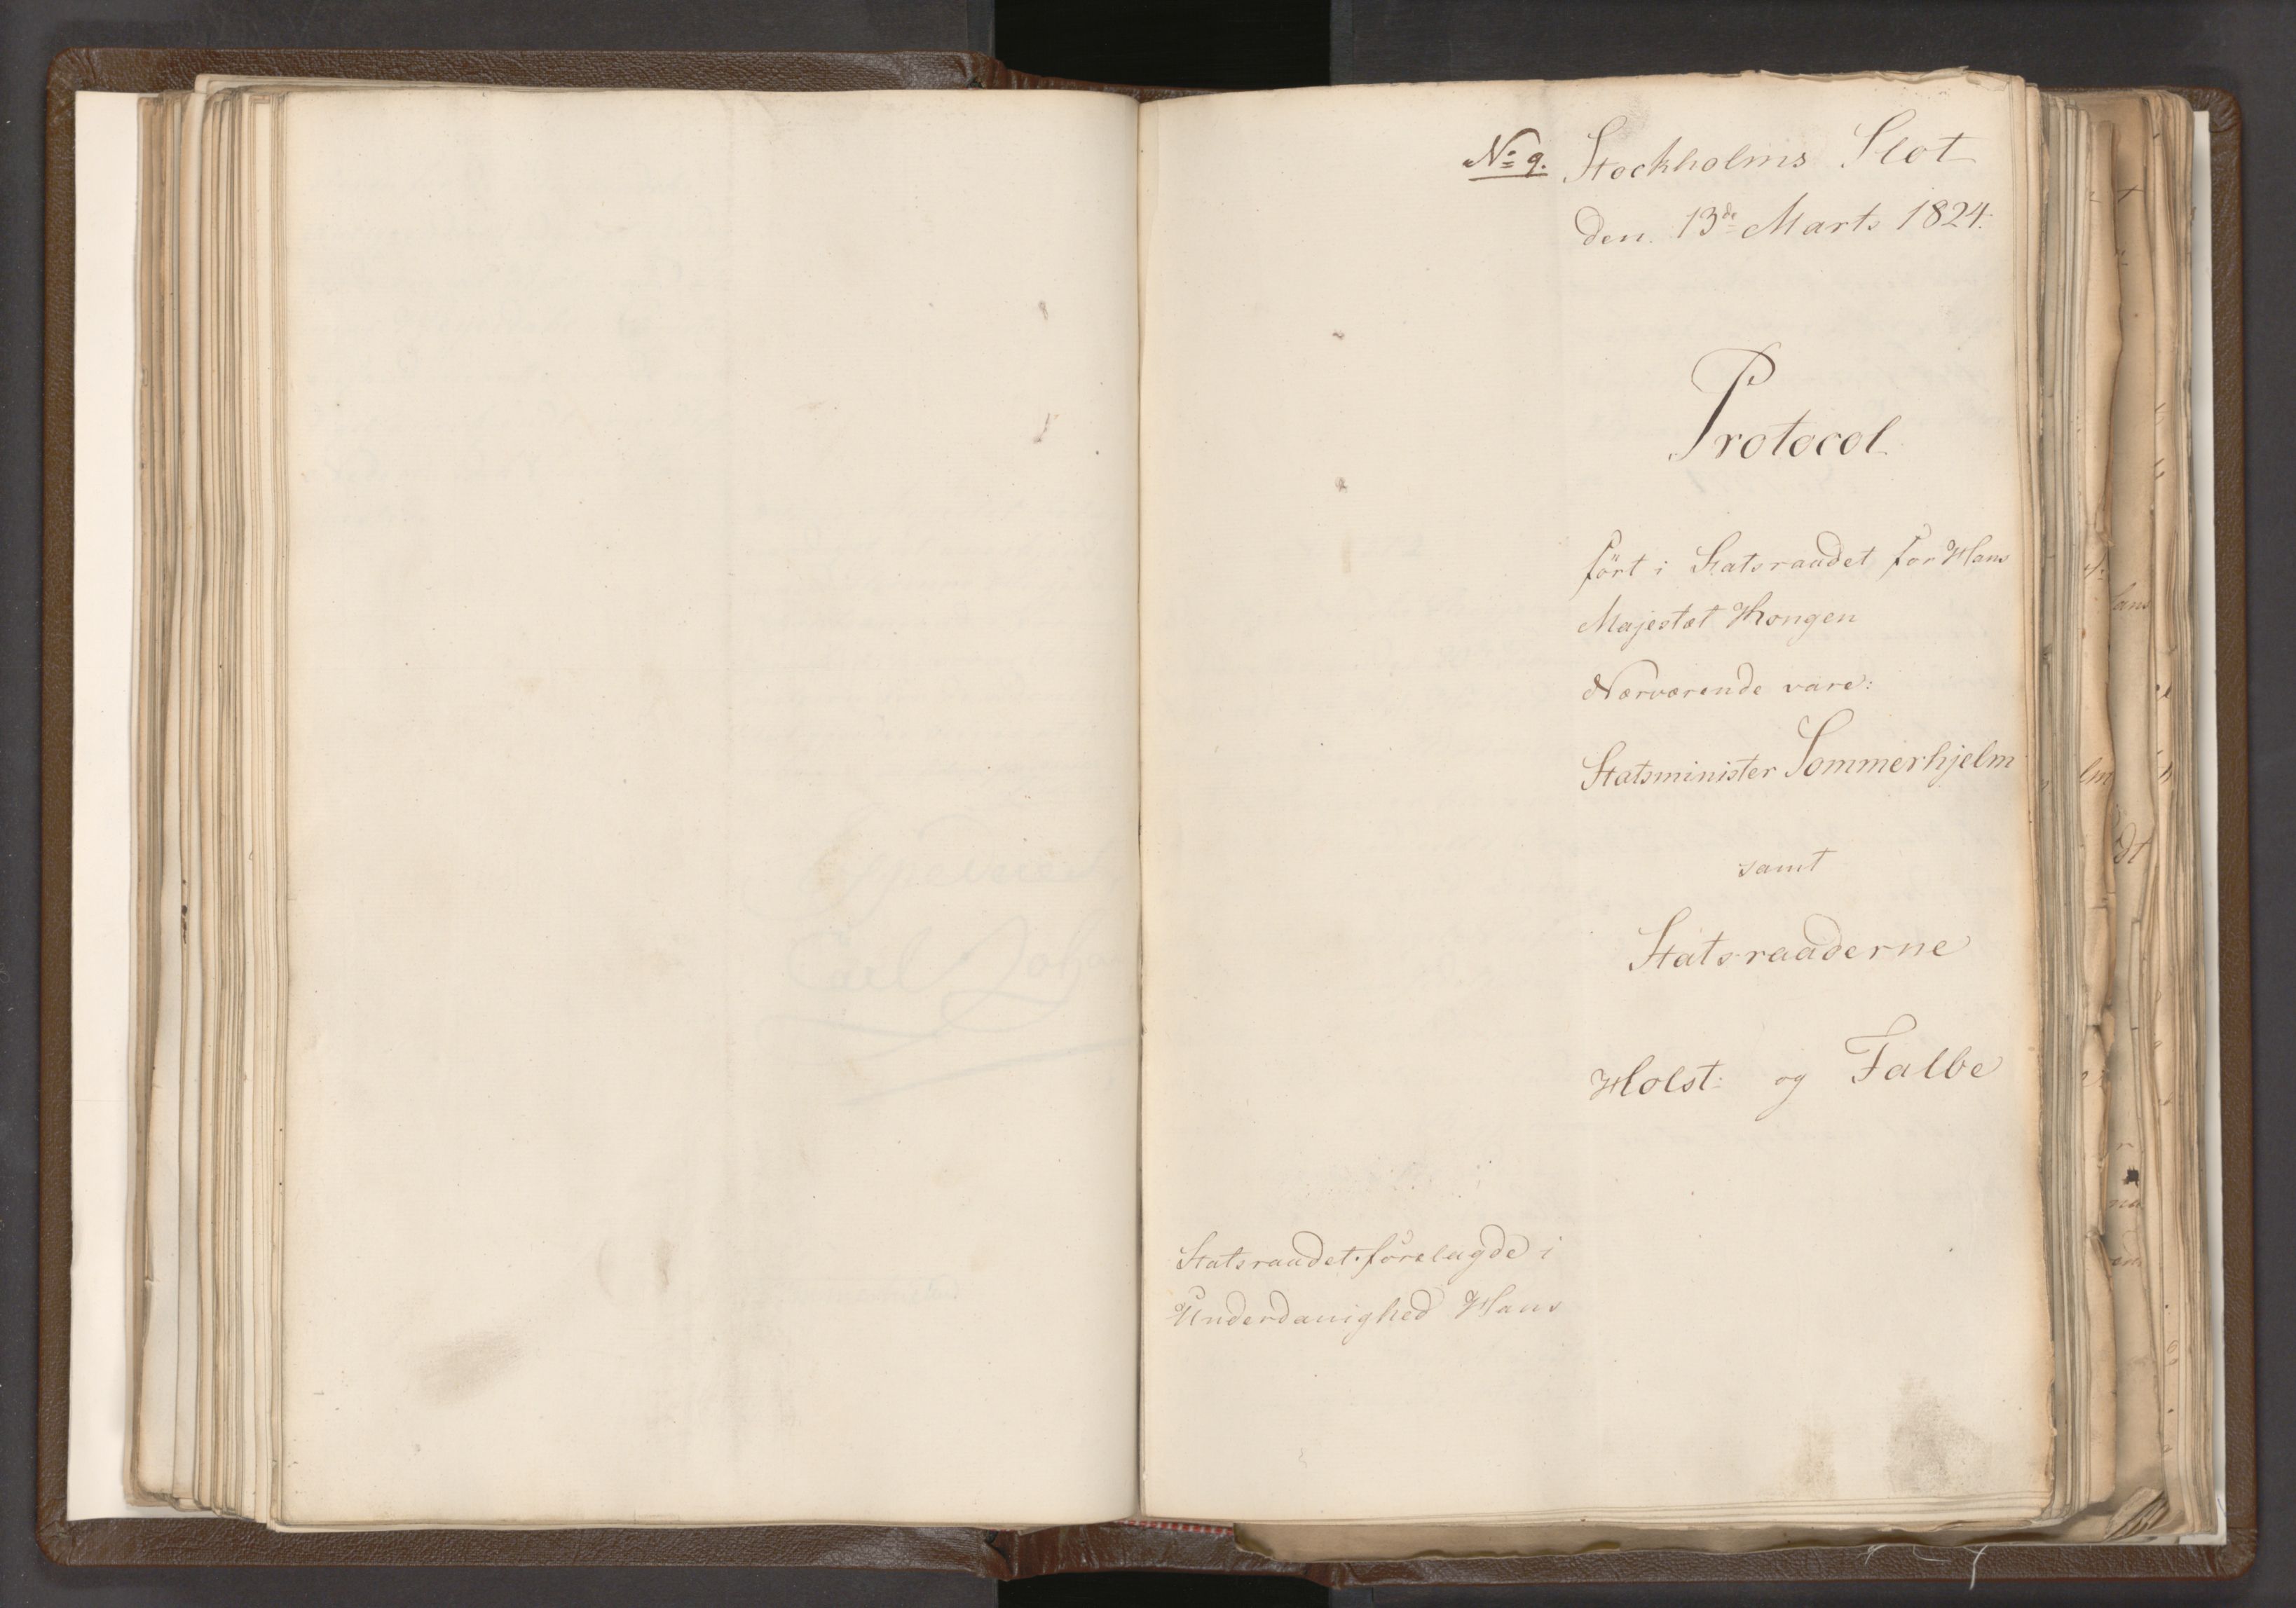 No 9. Stockholms Slot
den 13de Marts 1824.
Protocol
fört i Statsraadet for Hans
Majestæt Kongen
Nærværende vare:
Statsminister Sommerhjelm
samt
Statsraaderne
Holst og Falbe
Statsraadet forelagde i
Underdanighed Hans